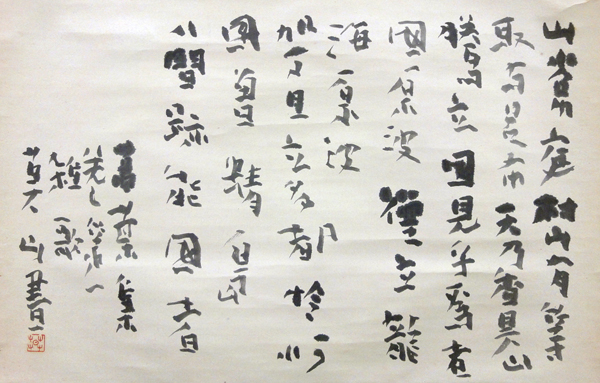 山常庭村山有等
取與呂布天乃香具山
騰立國見乎為者
國原波煙立籠
海原波
加万目立多都怜㤖
國曽蜻嶋
八間跡能國者
萬葉集
巻之第一
雑歌